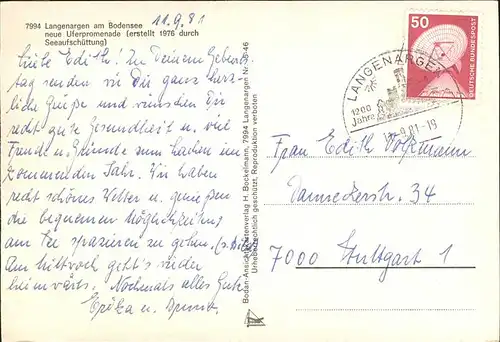 7994 Langenargen am Bodensee
neue Uferpromenade (erstellt 1976 durch
Seeaufschüttung)
11.9.81
Liebe Edith! Zu Deinem Geburts-
tag senden wir Dir ganz herz-
liche Grüße und wünschen Dir
recht gute Gesundheit u. viel
Freude u. Gründe zum Lachen im
kommenden Jahr. Wir haben
recht schönes Wetter u. genießen
die bequemen Möglichkeiten,
am See spazieren zu gehen. (s. Bild)
Am Mittwoch geht's wieder
heimwärts. Nochmals alles Gute
u.
Bodan-Ansichtskartenverlag H. Bockelmann, 7994 Langenargen Nr. 35-46
Urheberrechtlich geschützt, Reproduktion verboten
50
DEUTSCHE BUNDESPOST
LANGENARGEN
1200
Jahre
-9.81-19
Frau Edith Volkmann
Danneckerstr. 34
7000 Stuttgart 1